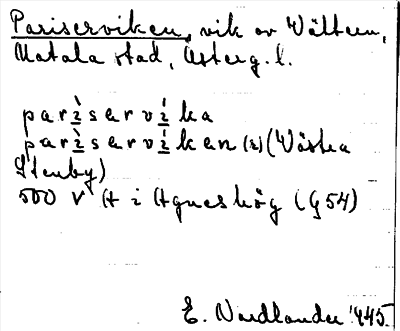 Pariserviken, vik av Vättern,
Motala stad, Österg. l.
parìsarvíka
parìsarvíkan (2) (Västra
Stenby)
500 v A i Agneshög (G 54)
E. Nordlander 1945.